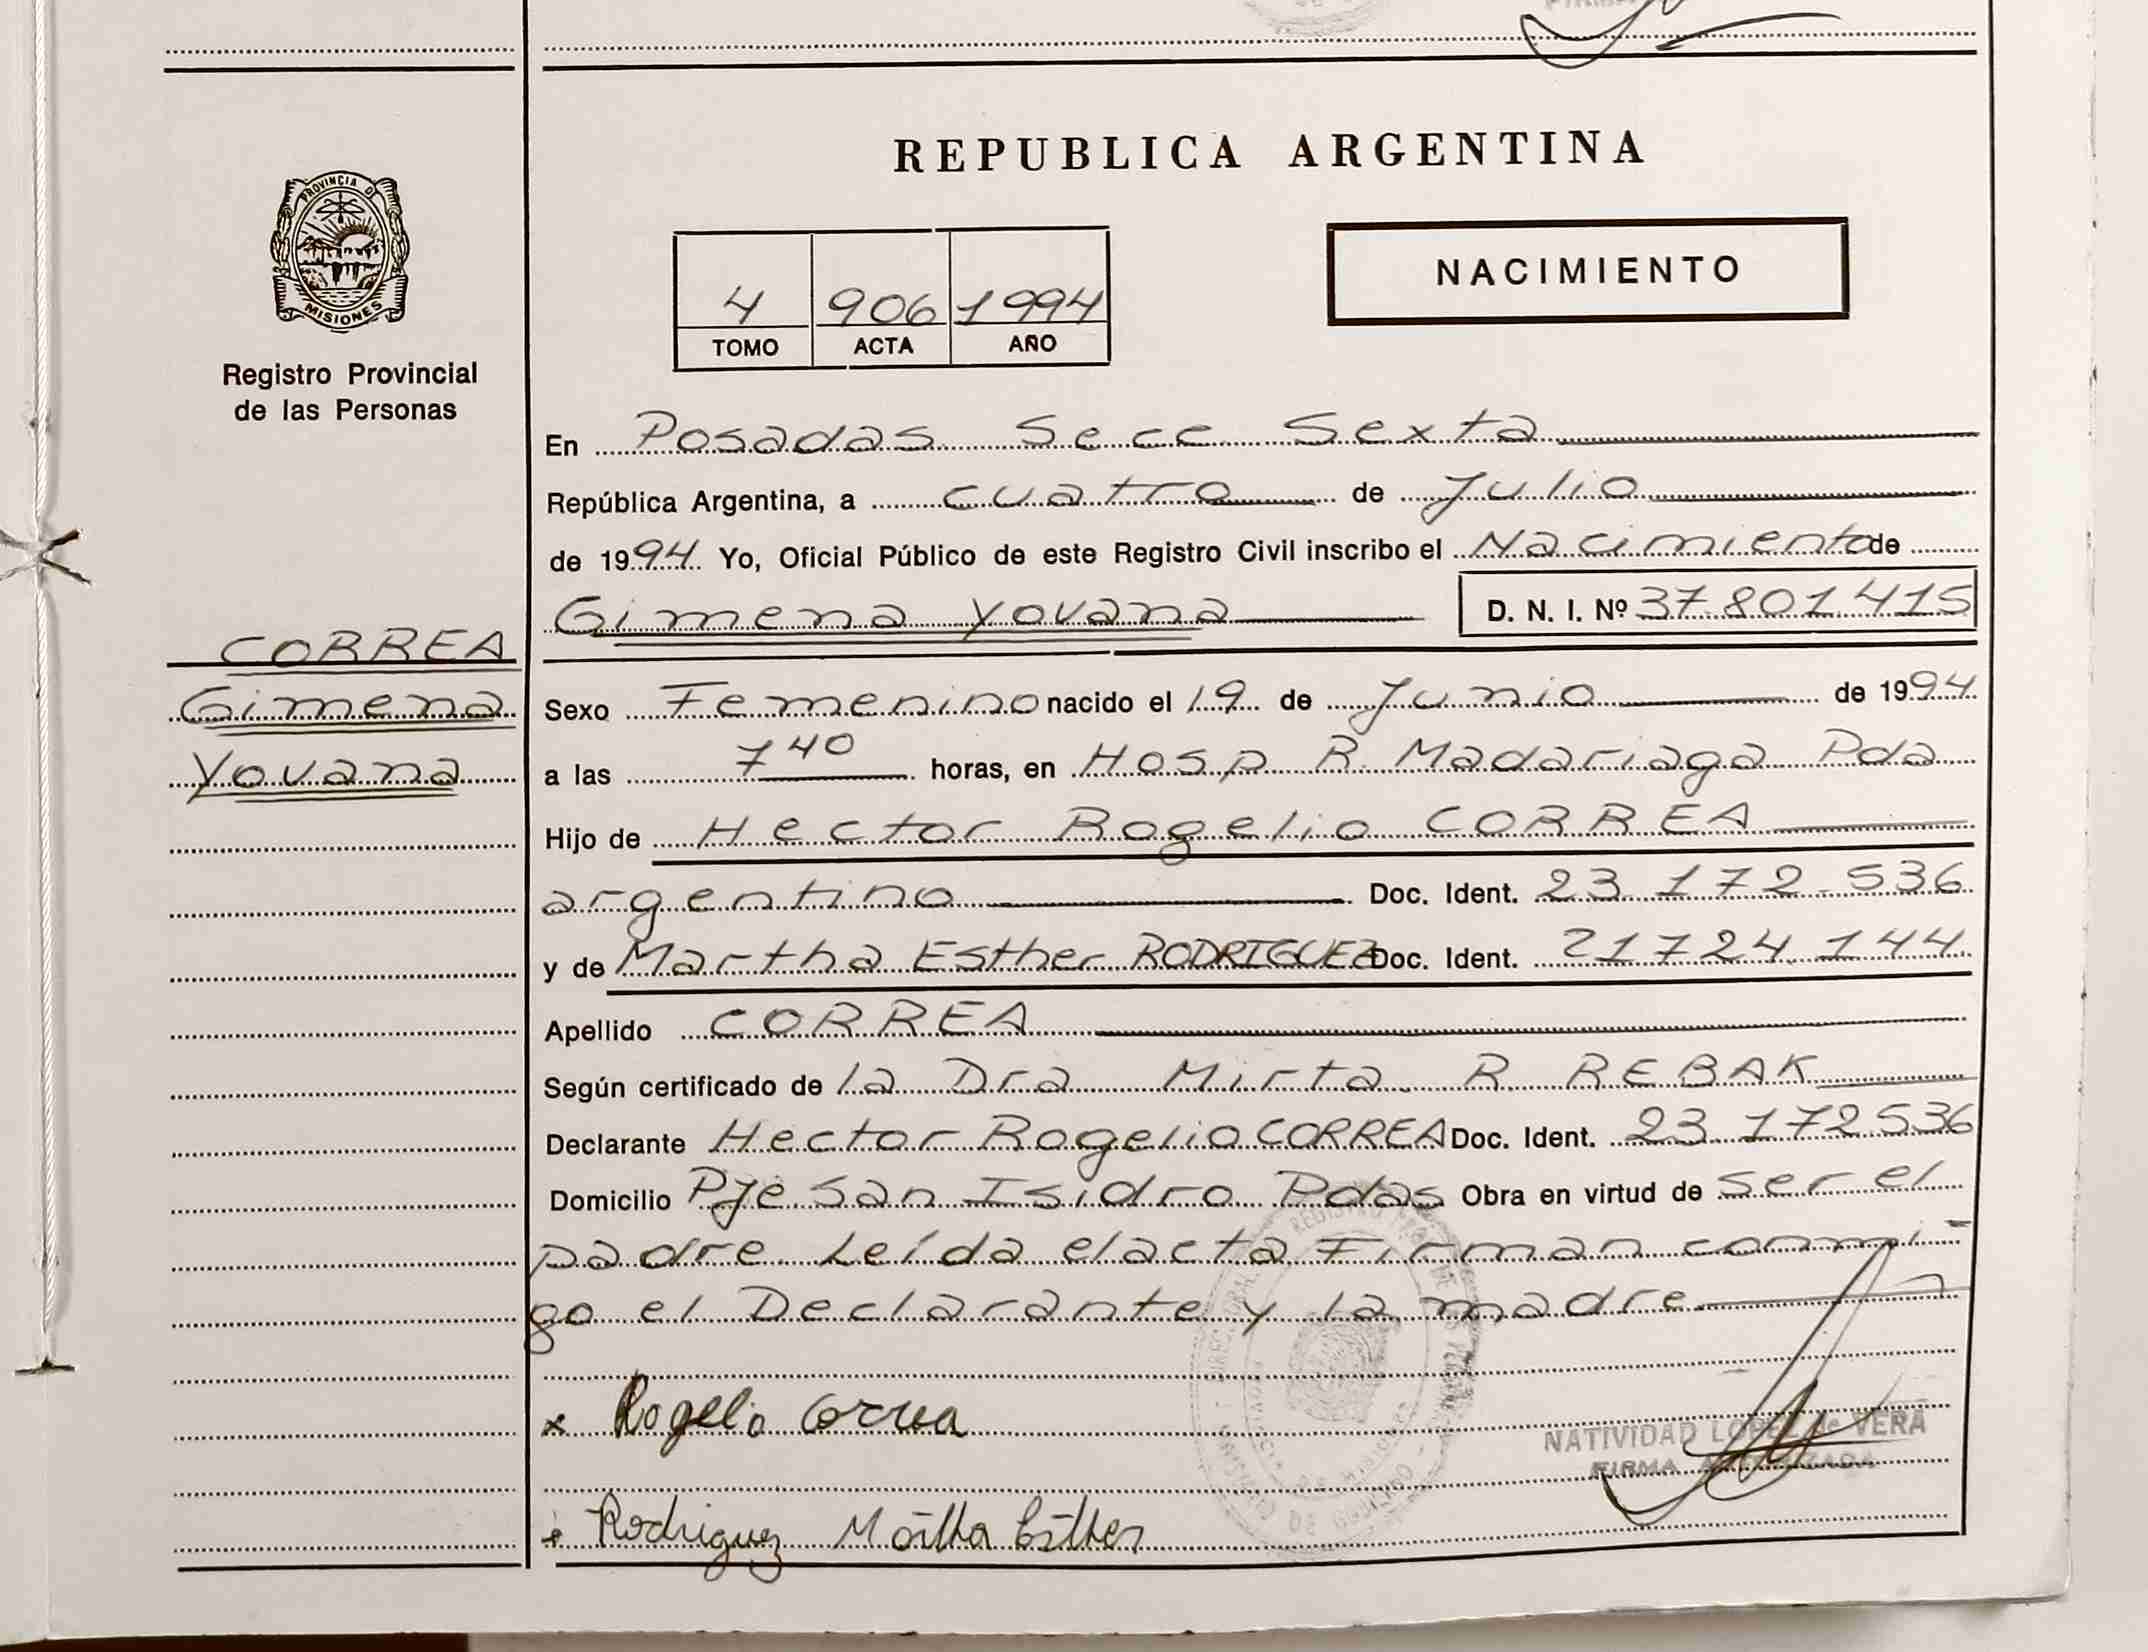 REPUBLICA ARGENTINA
PROVINCIA D
MISIONES
Registro Provincial
de las Personas
4 906 1994
TOMO ACTA AÑO
NACIMIENTO
En Posadas Secc Sexta
República Argentina, a cuatro de Julio
de 1994 Yo, Oficial Público de este Registro Civil inscribo el Nacimiento de
Gimena Yovana D. N. I. Nº 37.801.415
CORREA
Gimena
Yovana
Sexo Femenino nacido el 19 de Junio de 1994
a las 7 40 horas, en Hosp R. Madariaga Pda
Hijo de Hector Rogelio CORREA
argentino Doc. Ident. 23.172.536
y de Martha Esther RODRIGUEZ Doc. Ident. 21724.144
Apellido CORREA
Según certificado de la Dra Mirta R REBAK
Declarante Hector Rogelio CORREA Doc. Ident. 23.172536
Domicilio Pje San Isidro Pdas Obra en virtud de ser el
padre Leída el acta Firman conmi-
go el Declarante y la madre
x Rogelio Correa
NATIVIDAD LOPEZ de VERA
FIRMA AUTORIZADA
Rodriguez Martha Esther